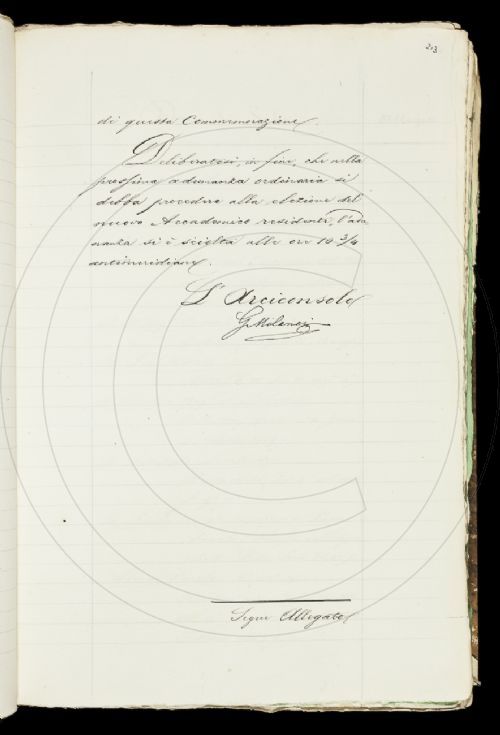 213
di questa Commemorazione.
Deliberatosi, in fine, che nella
prossima adunanza ordinaria si
debba procedere alla elezione del
nuovo Accademico residente, l'adu
nanza si è sciolta alle ore 10 3/4
antimeridiane.
L'Arciconsolo
Segue Allegato